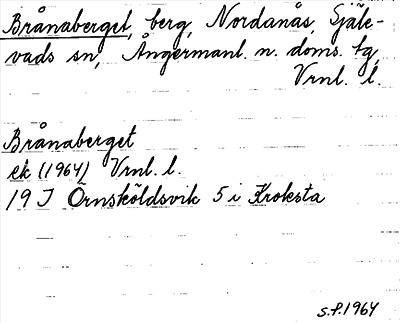 Brånaberget, berg, Nordanås, Själe-
vads sn, Ångermanl. n. doms. tg,
Vrnl. l.
Brånaberget
ek (1964) Vrnl. l.
19 J Örnsköldsvik 5 i Kroksta
S.P. 1964